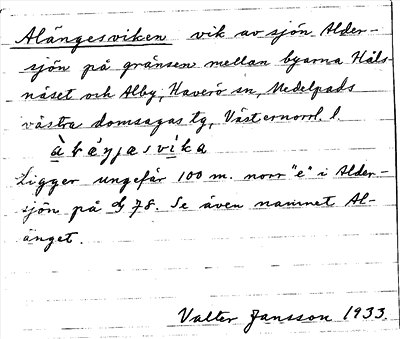 Alängesviken vik av sjön Alder-
sjön på gränsen mellan byarna Håls-
näset och Alby, Haverö sn, Medelpads
västra domsagas tg, Västernorrl. l.
Ligger ungefär 100 m. norr "e" i Alder-
sjön på G 78. Se även namnet Al-
änget.
Valter Jansson 1933.